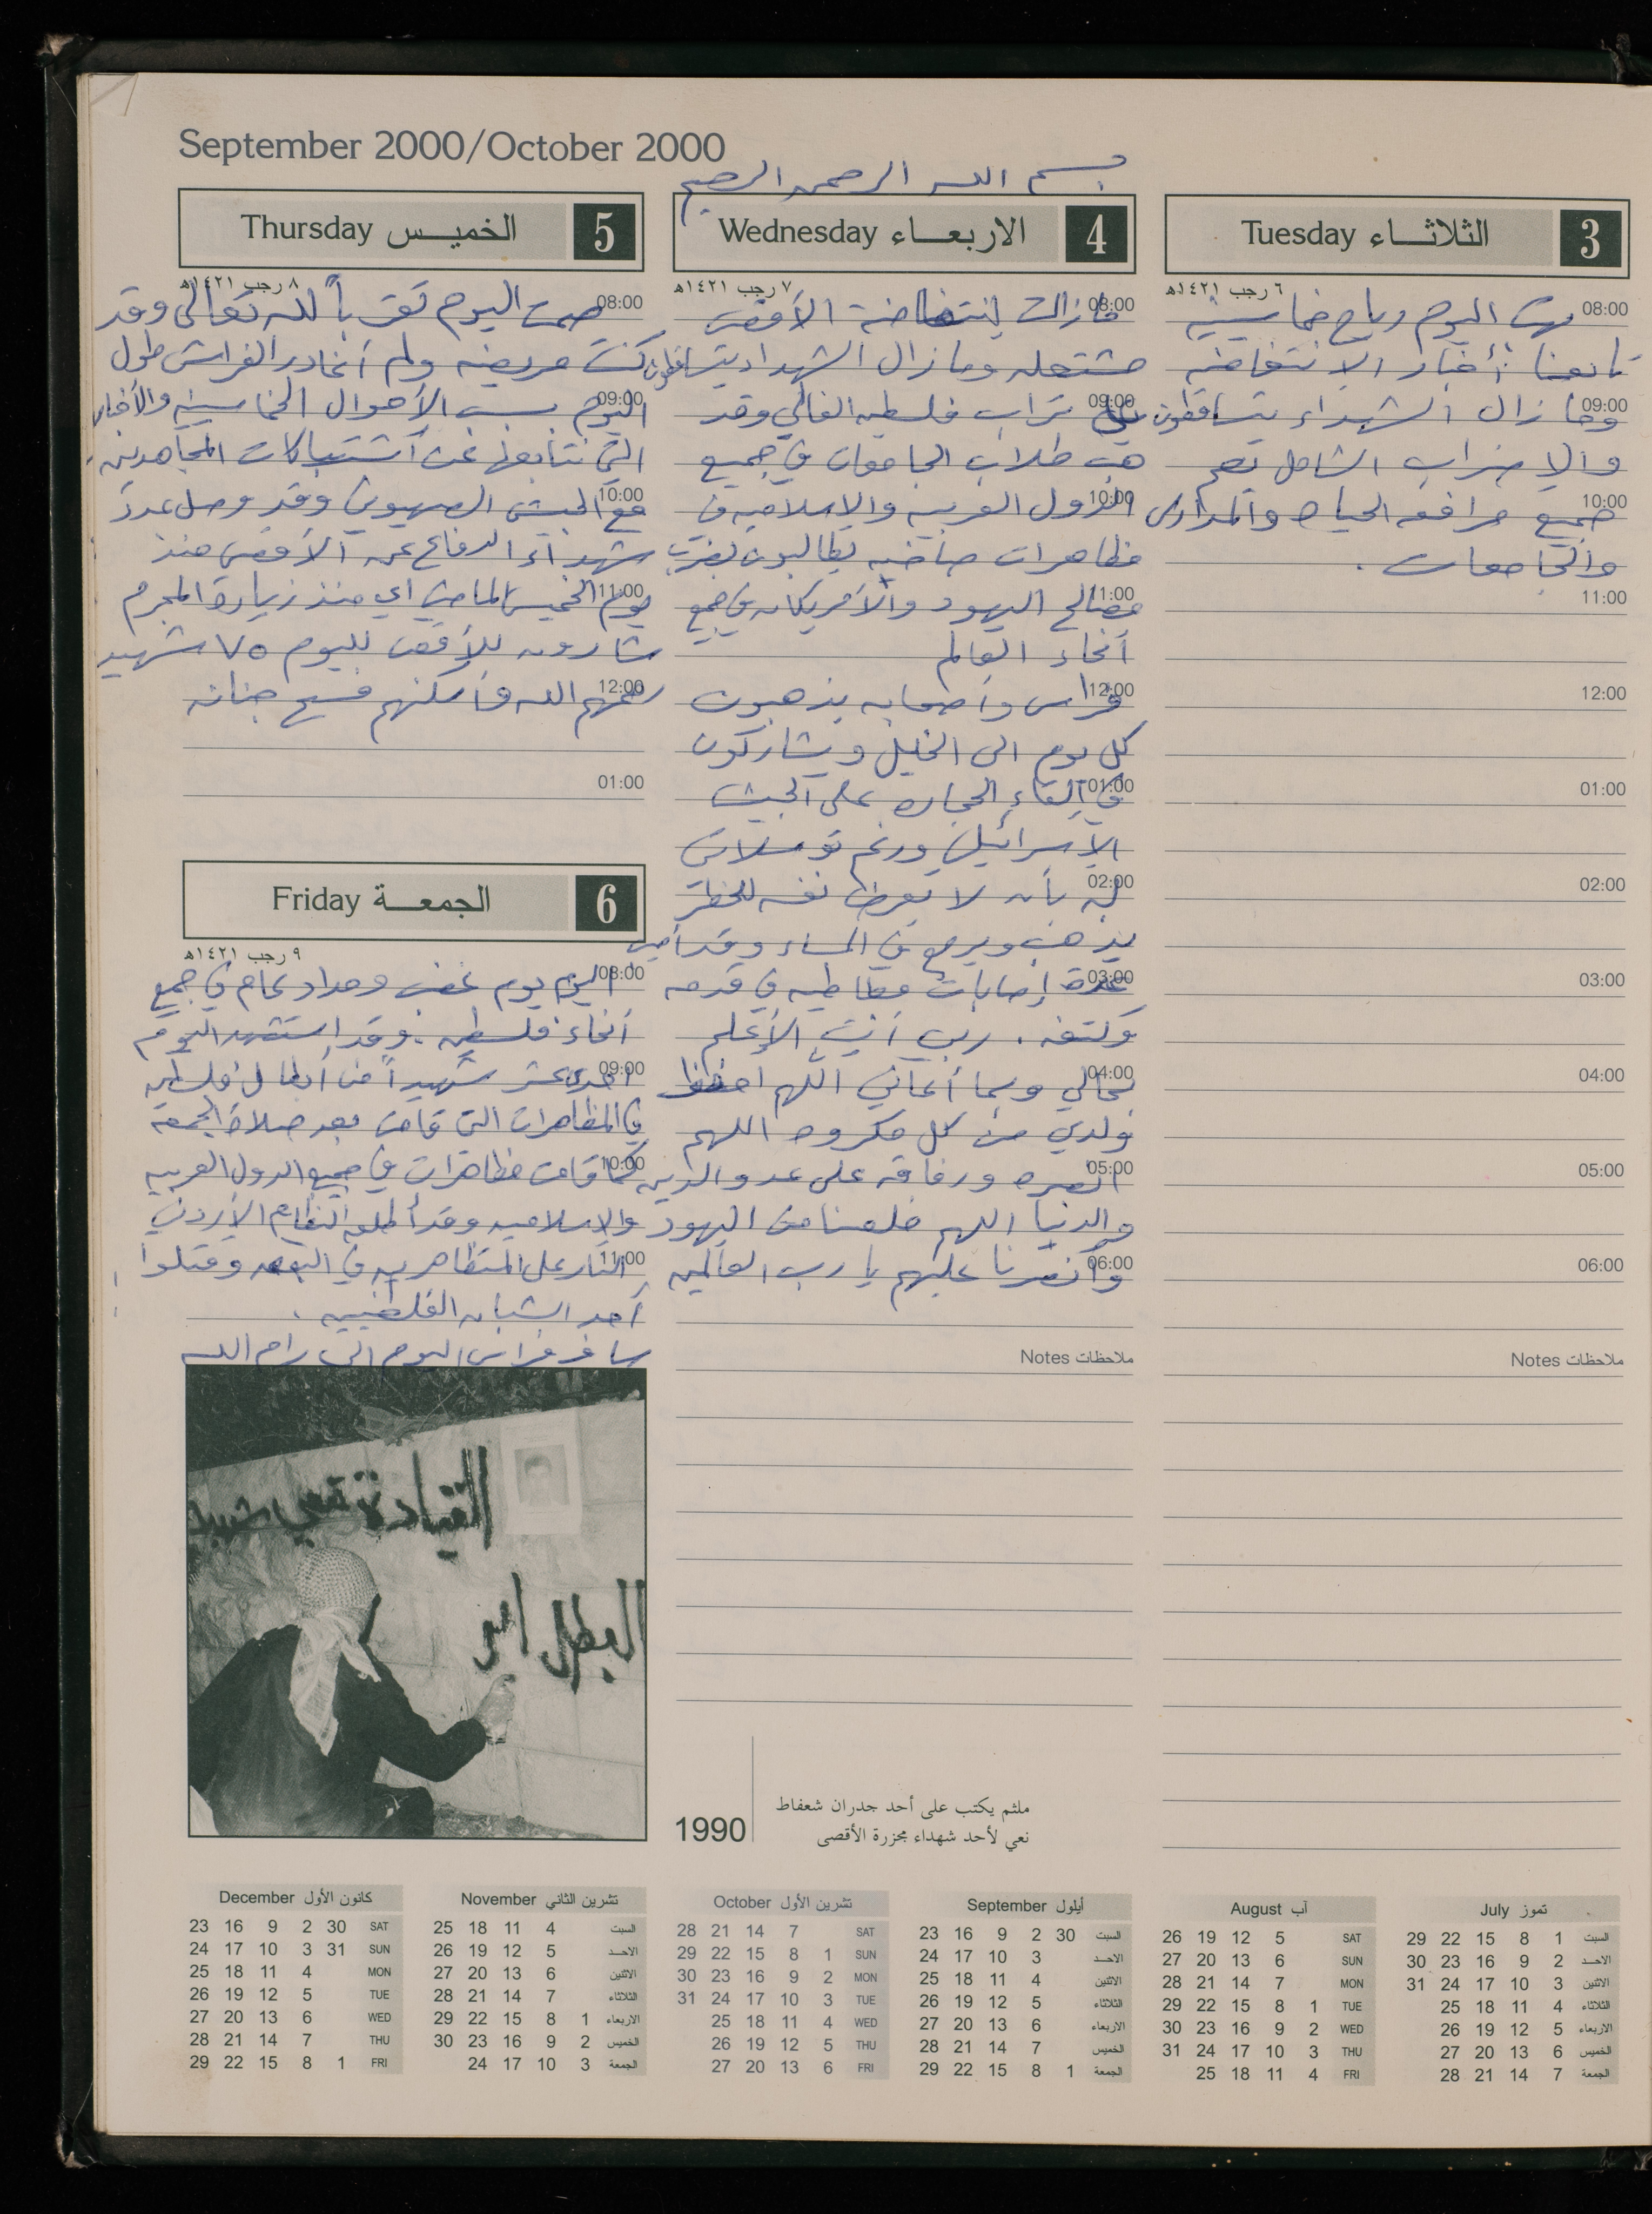 September 2000/October 2000
بسم الله الرحمن الرحيم
3 الثلاثاء Tuesday
٦ رجب ١٤٢١هـ
08:00 هبت اليوم رياح خماسينيه
تابعنا أخبار الانتفاضه
09:00 وما زال الشهداء يتساقطون
والإضراب الشامل يعم
10:00 جميع مرافق الحياه والمدارس
والجامعات .
11:00
12:00
01:00
02:00
03:00
04:00
05:00
06:00
ملاحظات Notes
4 الاربعاء Wednesday
٧ رجب ١٤٢١هـ
08:00 مازالت إنتفاضة الأقصى
مشتعله وما زال الشهداء يتساقطون
09:00 على تراب فلسطين الغالي وقد
هب طلاب الجامعات في جميع
10:00 الدول العربيه والإسلاميه في
مظاهرات صاخبه يطالبون بضرب
11:00 مصالح اليهود والأمريكان في جميع
أنحاء العالم
12:00 فراس وأصحابه يذهبون
كل يوم الى الخليل ويشاركون
01:00 في إلقاء الحجاره على الجيش
الإسرائيلي ورغم توسلاتي
02:00 له بأن لا يعرض نفسه للخطر
يذهب ويرجع في المساء وقد أصيب
03:00 عدة إصابات مطاطيه في قدمه
وكتفه . ربي أنت الأعلم
04:00 بحالي وبما أعاني اللهم احفظ
ولدي من كل مكروه اللهم
05:00 انصره ورفاقه على عدو الدين
والدنيا اللهم خلصنا من اليهود
06:00 وانصرنا عليهم يا رب العالمين
ملاحظات Notes
5 الخميس Thursday
٨ رجب ١٤٢١هـ
08:00 صمت اليوم تقرباً لله تعالى وقد
كنت مريضه ولم أغادر الفراش طول
09:00 اليوم بسبب الأحوال الخماسينيه والأخبار
التي نتابعها عن اشتباكات المجاهدين
10:00 مع الجيش الصهيوني وقد وصل عدد
شهداء الدفاع عن الأقصى منذ
11:00 يوم الخميس الماضي اي منذ زيارة المجرم
شارون للأقصى لليوم ٧٥ شهيد
12:00 رحمهم الله وأسكنهم فسيح جنانه
01:00
6 الجمعة Friday
٩ رجب ١٤٢١هـ
08:00 اليوم يوم غضب وحداد عام في جميع
أنحاء فلسطين . وقد استشهد اليوم
09:00 احدى عشر شهيداً من أبطال فلسطين
في المظاهرات التي قامت بعد صلاة الجمعة
10:00 كما قامت مظاهرات في جميع الدول العربيه
والإسلاميه وقد أطلق النظام الأردني
11:00 النار على المتظاهرين في البقعه وقتلوا
أحد الشبان الفلسطينيين .
سافر فراس اليوم الى رام الله
القيادة تنعي شهيد
البطل ابو
1990
ملثم يكتب على أحد جدران شعفاط
نعي لأحد شهداء مجزرة الأقصى
تموز July
السبت 1 8 15 22 29
الاحد 2 9 16 23 30
الاثنين 3 10 17 24 31
الثلاثاء 4 11 18 25
الاربعاء 5 12 19 26
الخميس 6 13 20 27
الجمعة 7 14 21 28
آب August
SAT 5 12 19 26
SUN 6 13 20 27
MON 7 14 21 28
TUE 1 8 15 22 29
WED 2 9 16 23 30
THU 3 10 17 24 31
FRI 4 11 18 25
أيلول September
السبت 30 2 9 16 23
الاحد 3 10 17 24
الاثنين 4 11 18 25
الثلاثاء 5 12 19 26
الاربعاء 6 13 20 27
الخميس 7 14 21 28
الجمعة 1 8 15 22 29
تشرين الأول October
SAT 7 14 21 28
SUN 1 8 15 22 29
MON 2 9 16 23 30
TUE 3 10 17 24 31
WED 4 11 18 25
THU 5 12 19 26
FRI 6 13 20 27
تشرين الثاني November
السبت 4 11 18 25
الاحد 5 12 19 26
الاثنين 6 13 20 27
الثلاثاء 7 14 21 28
الاربعاء 1 8 15 22 29
الخميس 2 9 16 23 30
الجمعة 3 10 17 24
كانون الأول December
SAT 30 2 9 16 23
SUN 31 3 10 17 24
MON 4 11 18 25
TUE 5 12 19 26
WED 6 13 20 27
THU 7 14 21 28
FRI 1 8 15 22 29